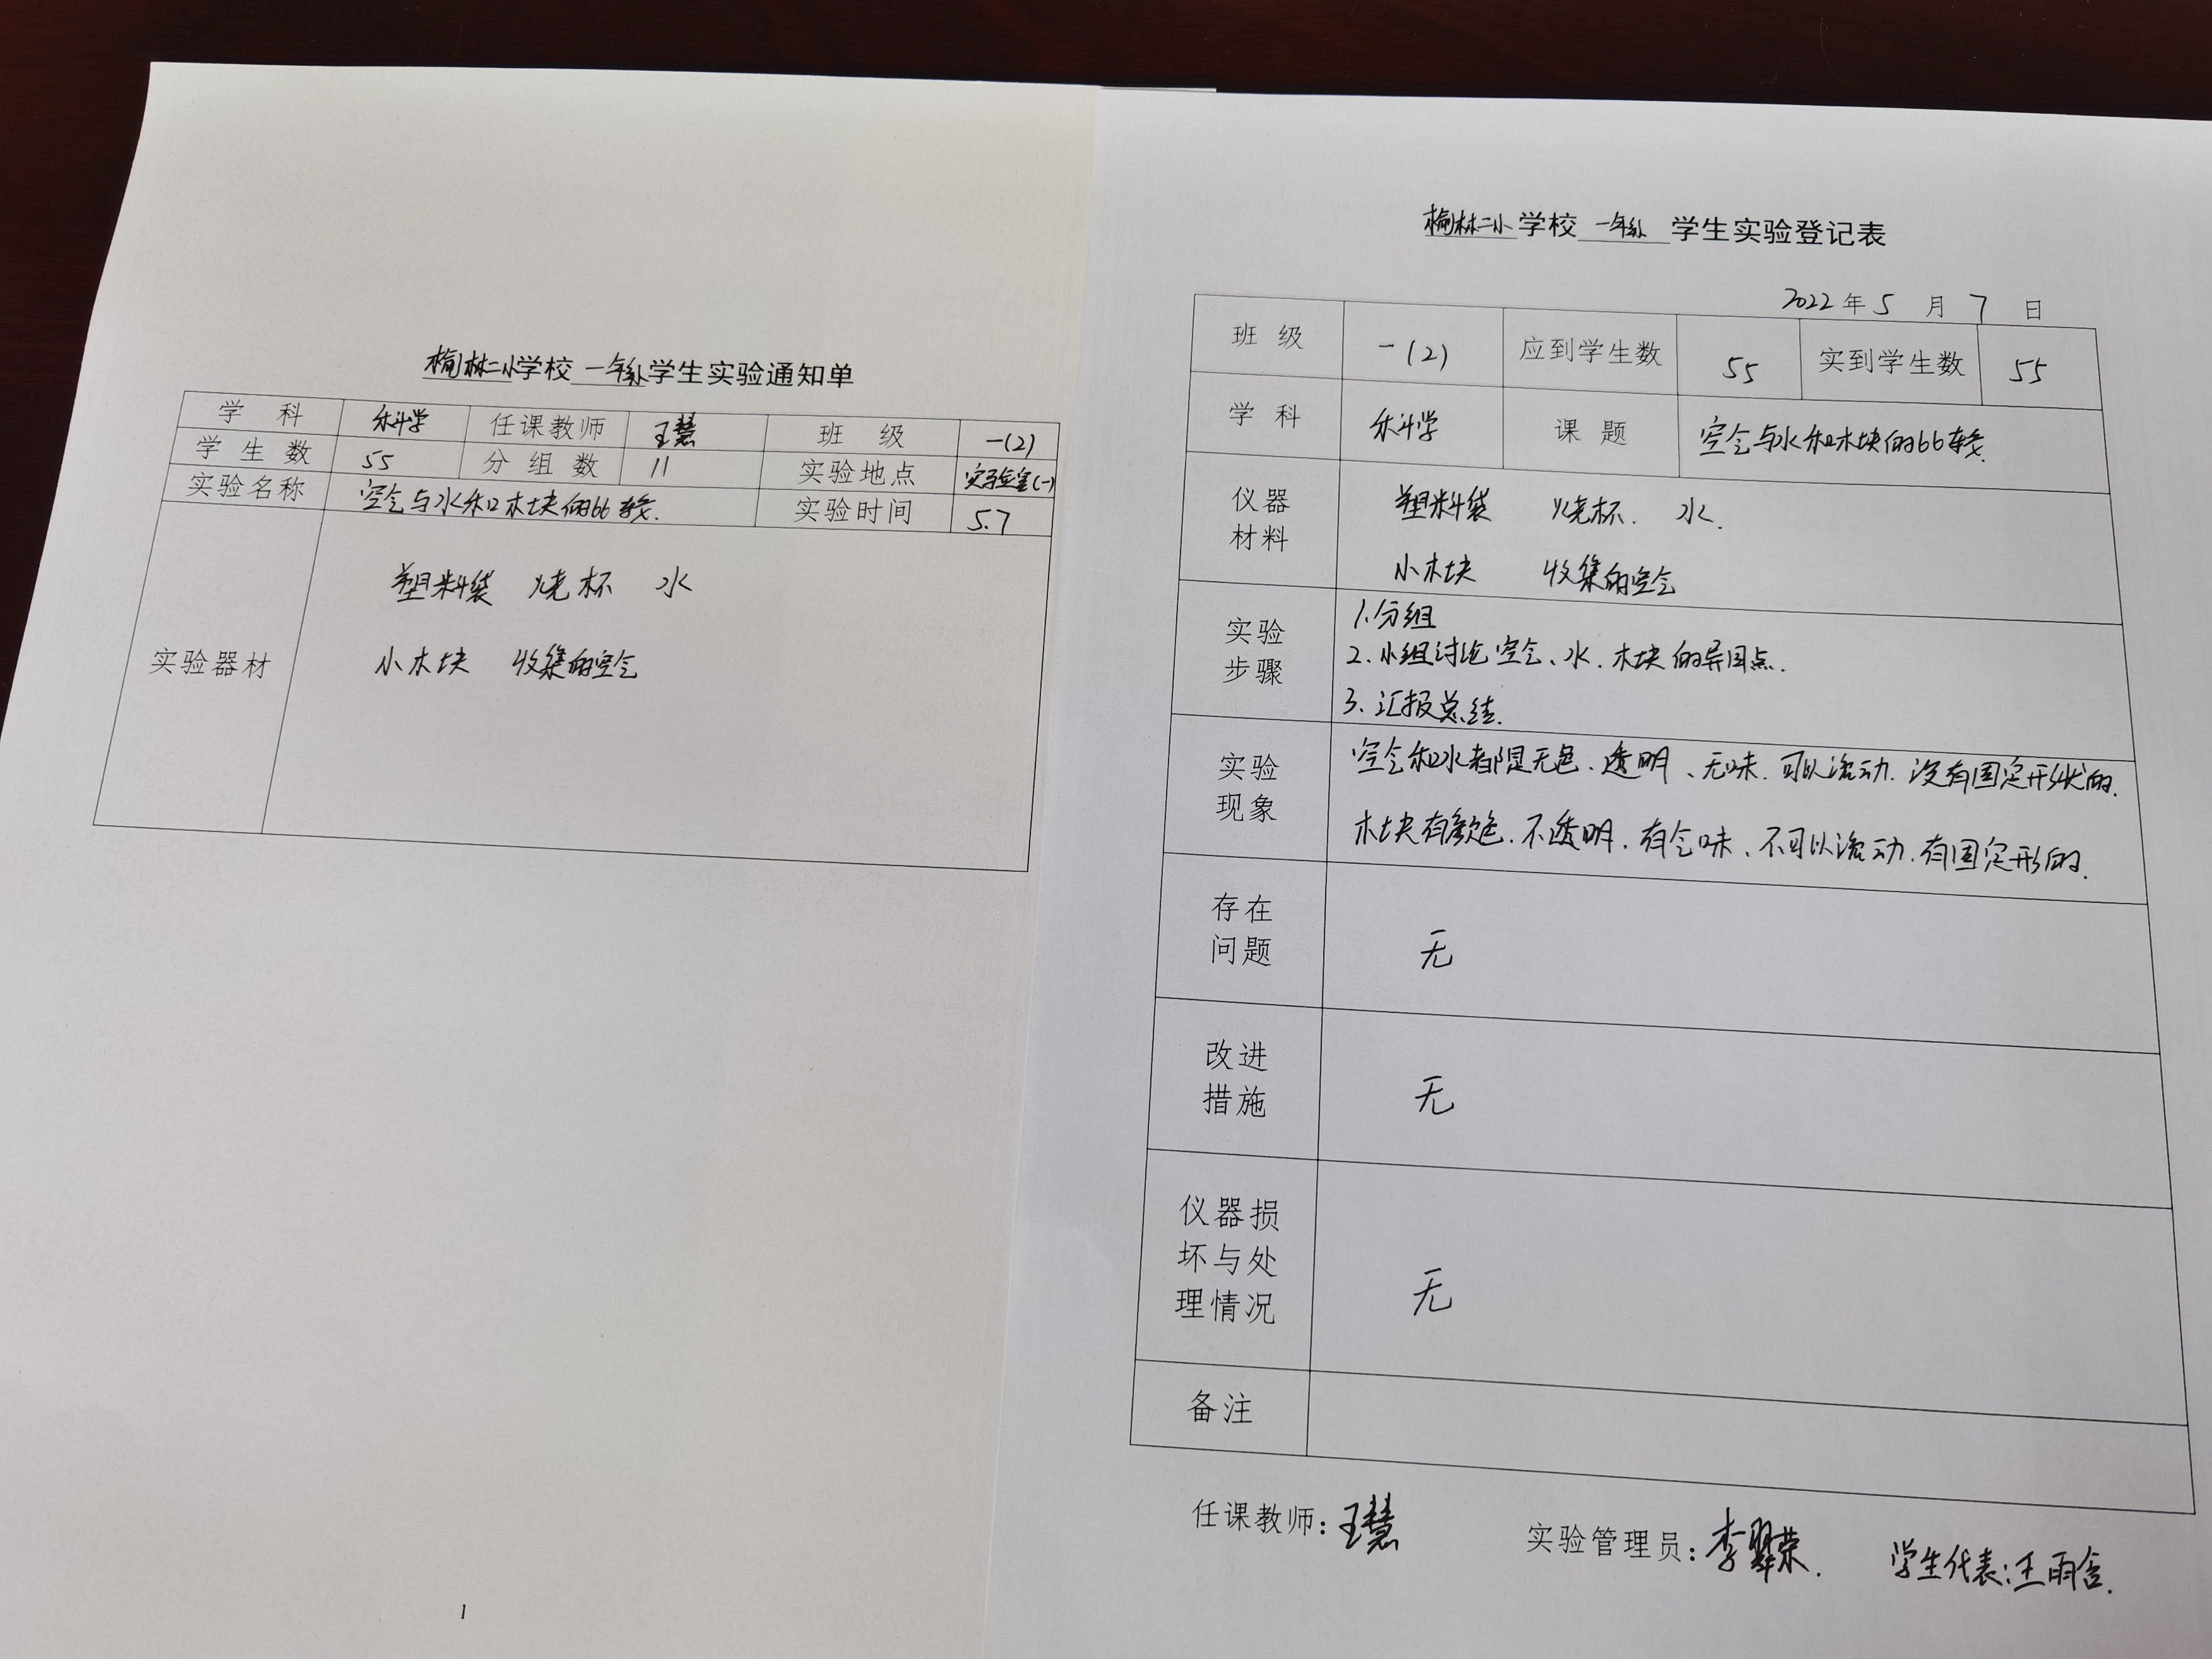 榆林二小学校 一年级 学生实验通知单
学 科 科学 任课教师 王慧 班 级 一(2)
学 生 数 55 分 组 数 11 实验地点 实验室(一)
实验名称 空气与水和木块的比较. 实验时间 5.7
实验器材
塑料袋 烧杯 水
小木块 收集的空气
1
榆林二小 学校 一年级 学生实验登记表
2022 年 5 月 7 日
班 级 一(2) 应到学生数 55 实到学生数 55
学 科 科学 课 题 空气与水和木块的比较.
仪器
材料
塑料袋 烧杯. 水.
小木块 收集的空气
实验
步骤
1.分组
2.小组讨论空气、水、木块的异同点.
3.汇报总结.
实验
现象
空气和水都是无色、透明、无味、可以流动、没有固定形状的.
木块有颜色、不透明、有气味、不可以流动、有固定形的.
存在
问题
无
改进
措施
无
仪器损
坏与处
理情况
无
备注
任课教师:王慧 实验管理员:李翠荣. 学生代表:王雨含.